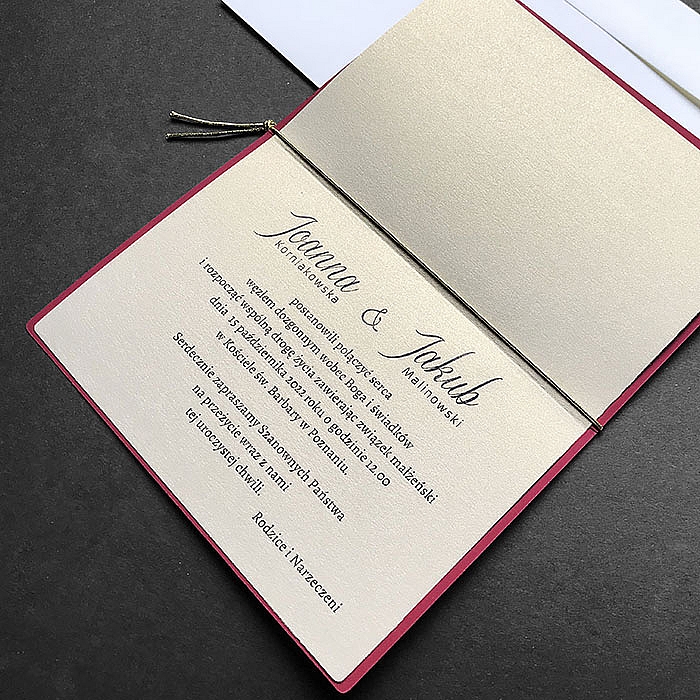 Joanna
Korniakowska
&
Jakub
Malinowski
postanowili połączyć serca
węzłem dozgonnym wobec Boga i świadków
i rozpocząć wspólną drogę życia zawierając związek małżeński
dnia 15 października 2022 roku o godzinie 12.00
w Kościele św. Barbary w Poznaniu.
Serdecznie zapraszamy Szanownych Państwa
na przeżycie wraz z nami
tej uroczystej chwili.
Rodzice i Narzeczeni